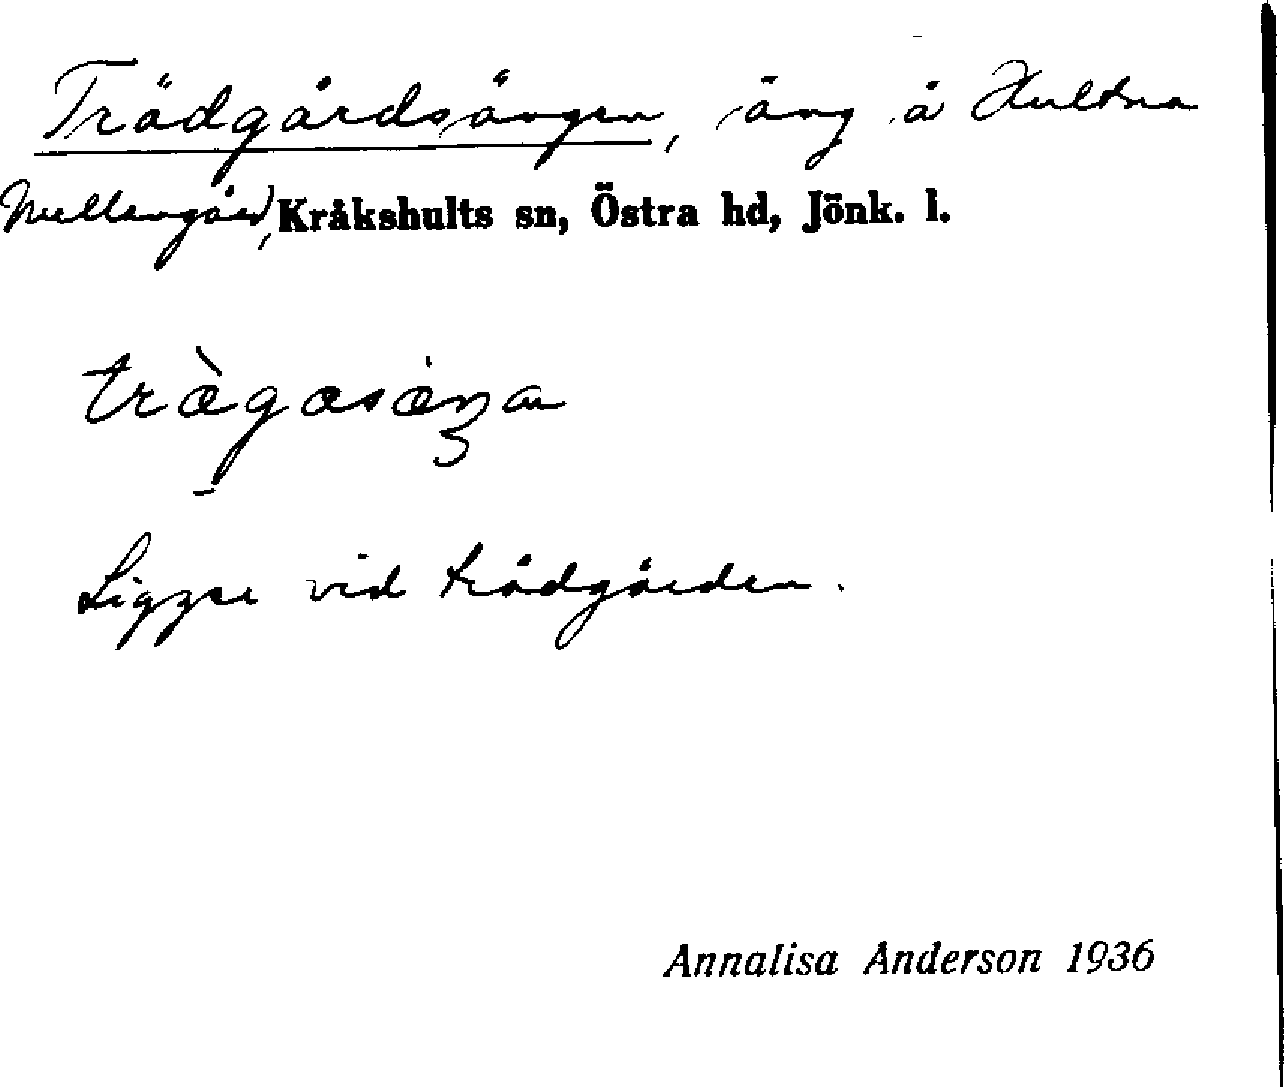 Trädgårdsängen, äng å Hultna
Mellangård, Kråkshults sn, Östra hd, Jönk. l.
Ligger vid trädgården.
Annalisa Anderson 1936